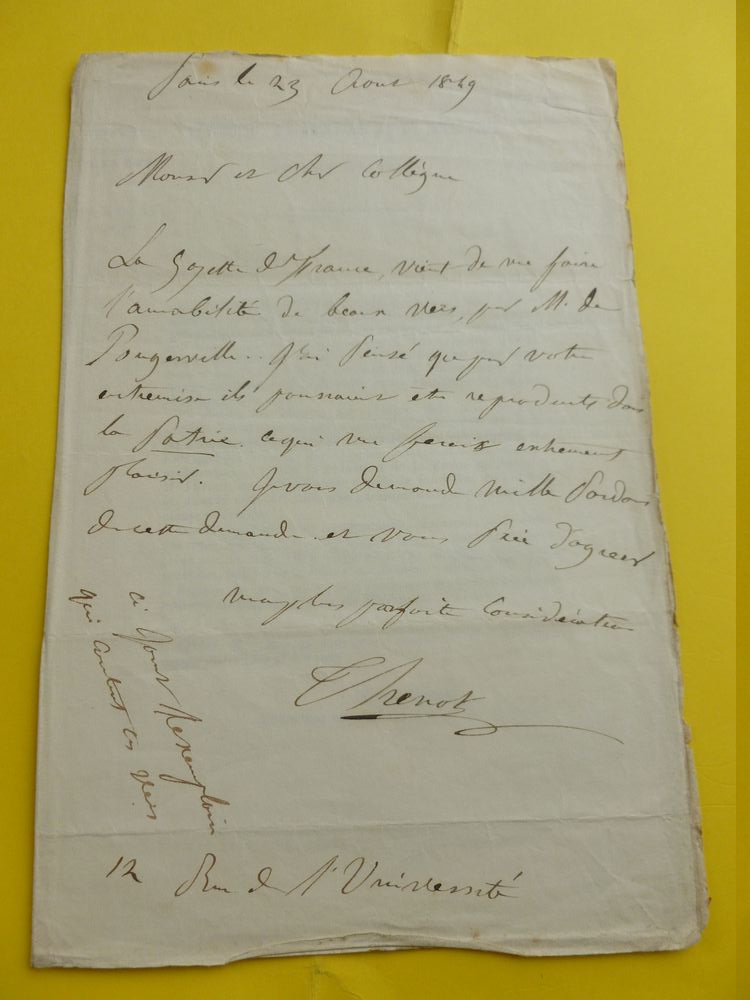 Paris le 23 Aout 1849
Monsr et cher Collègue
La Gazette de France, vient de me faire
l'amabilité de beaux vers, par M. de
Pongerville. J'ai pensé que par votre
entremise ils pourraient etre reproduits dans
la Patrie. ce qui me ferait extremement
plaisir. Je vous demande mille Pardons
de cette demande et vous Prie d'agréer
ma plus parfaite Considération
Thenot
ci Joint l'exemplaire
qui contient ces vers
12 Rue de l'Université